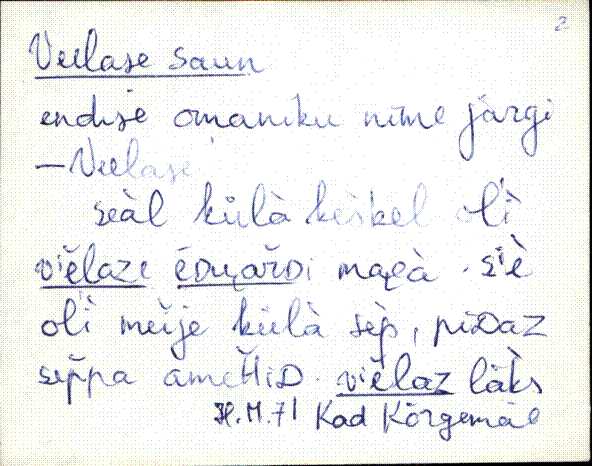 2
Veelase saun
endise omaniku nime järgi
— Veelase
seàl külà kèskel ol'i
viĕlaze èDuarDi maj̭à. siè
ol'i meije külà sèp, piDaz
seppa ameTiD. viĕlaz läks
H.M.71 Kad Kõrgemäe